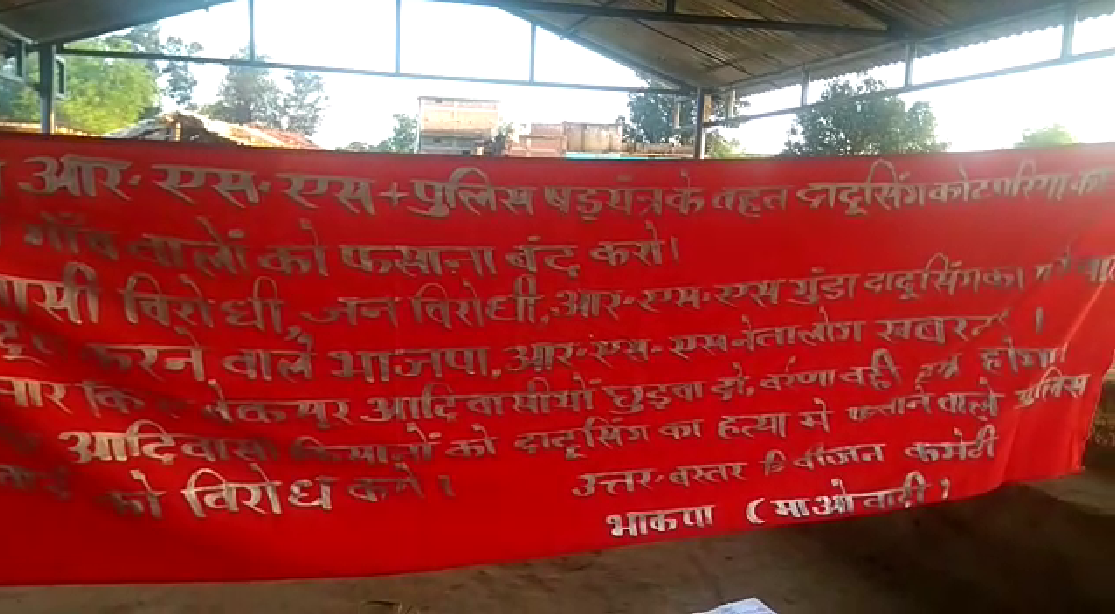 आर. एस. एस + पुलिस षडयंत्र के तहत दादूसिंग कोटपरिया का
गाँव वालों को फसाना बंद करो।
विरोधी, जन विरोधी, आर. एस. एस गुंडा दादूसिंग का
करने वाले भाजपा, आर. एस. एस नेता लोग खबरदार।
बेकसूर आदिवासीयों छुड़वा दो, वरंणा वही हस्र होगा।
आदिवासी किसानों को दादूसिंग का हत्या मे फसाने वाले पुलिस
को विरोध करो। उत्तर. बस्तर डिवीजन कमेठी
भाकपा (माओवादी)